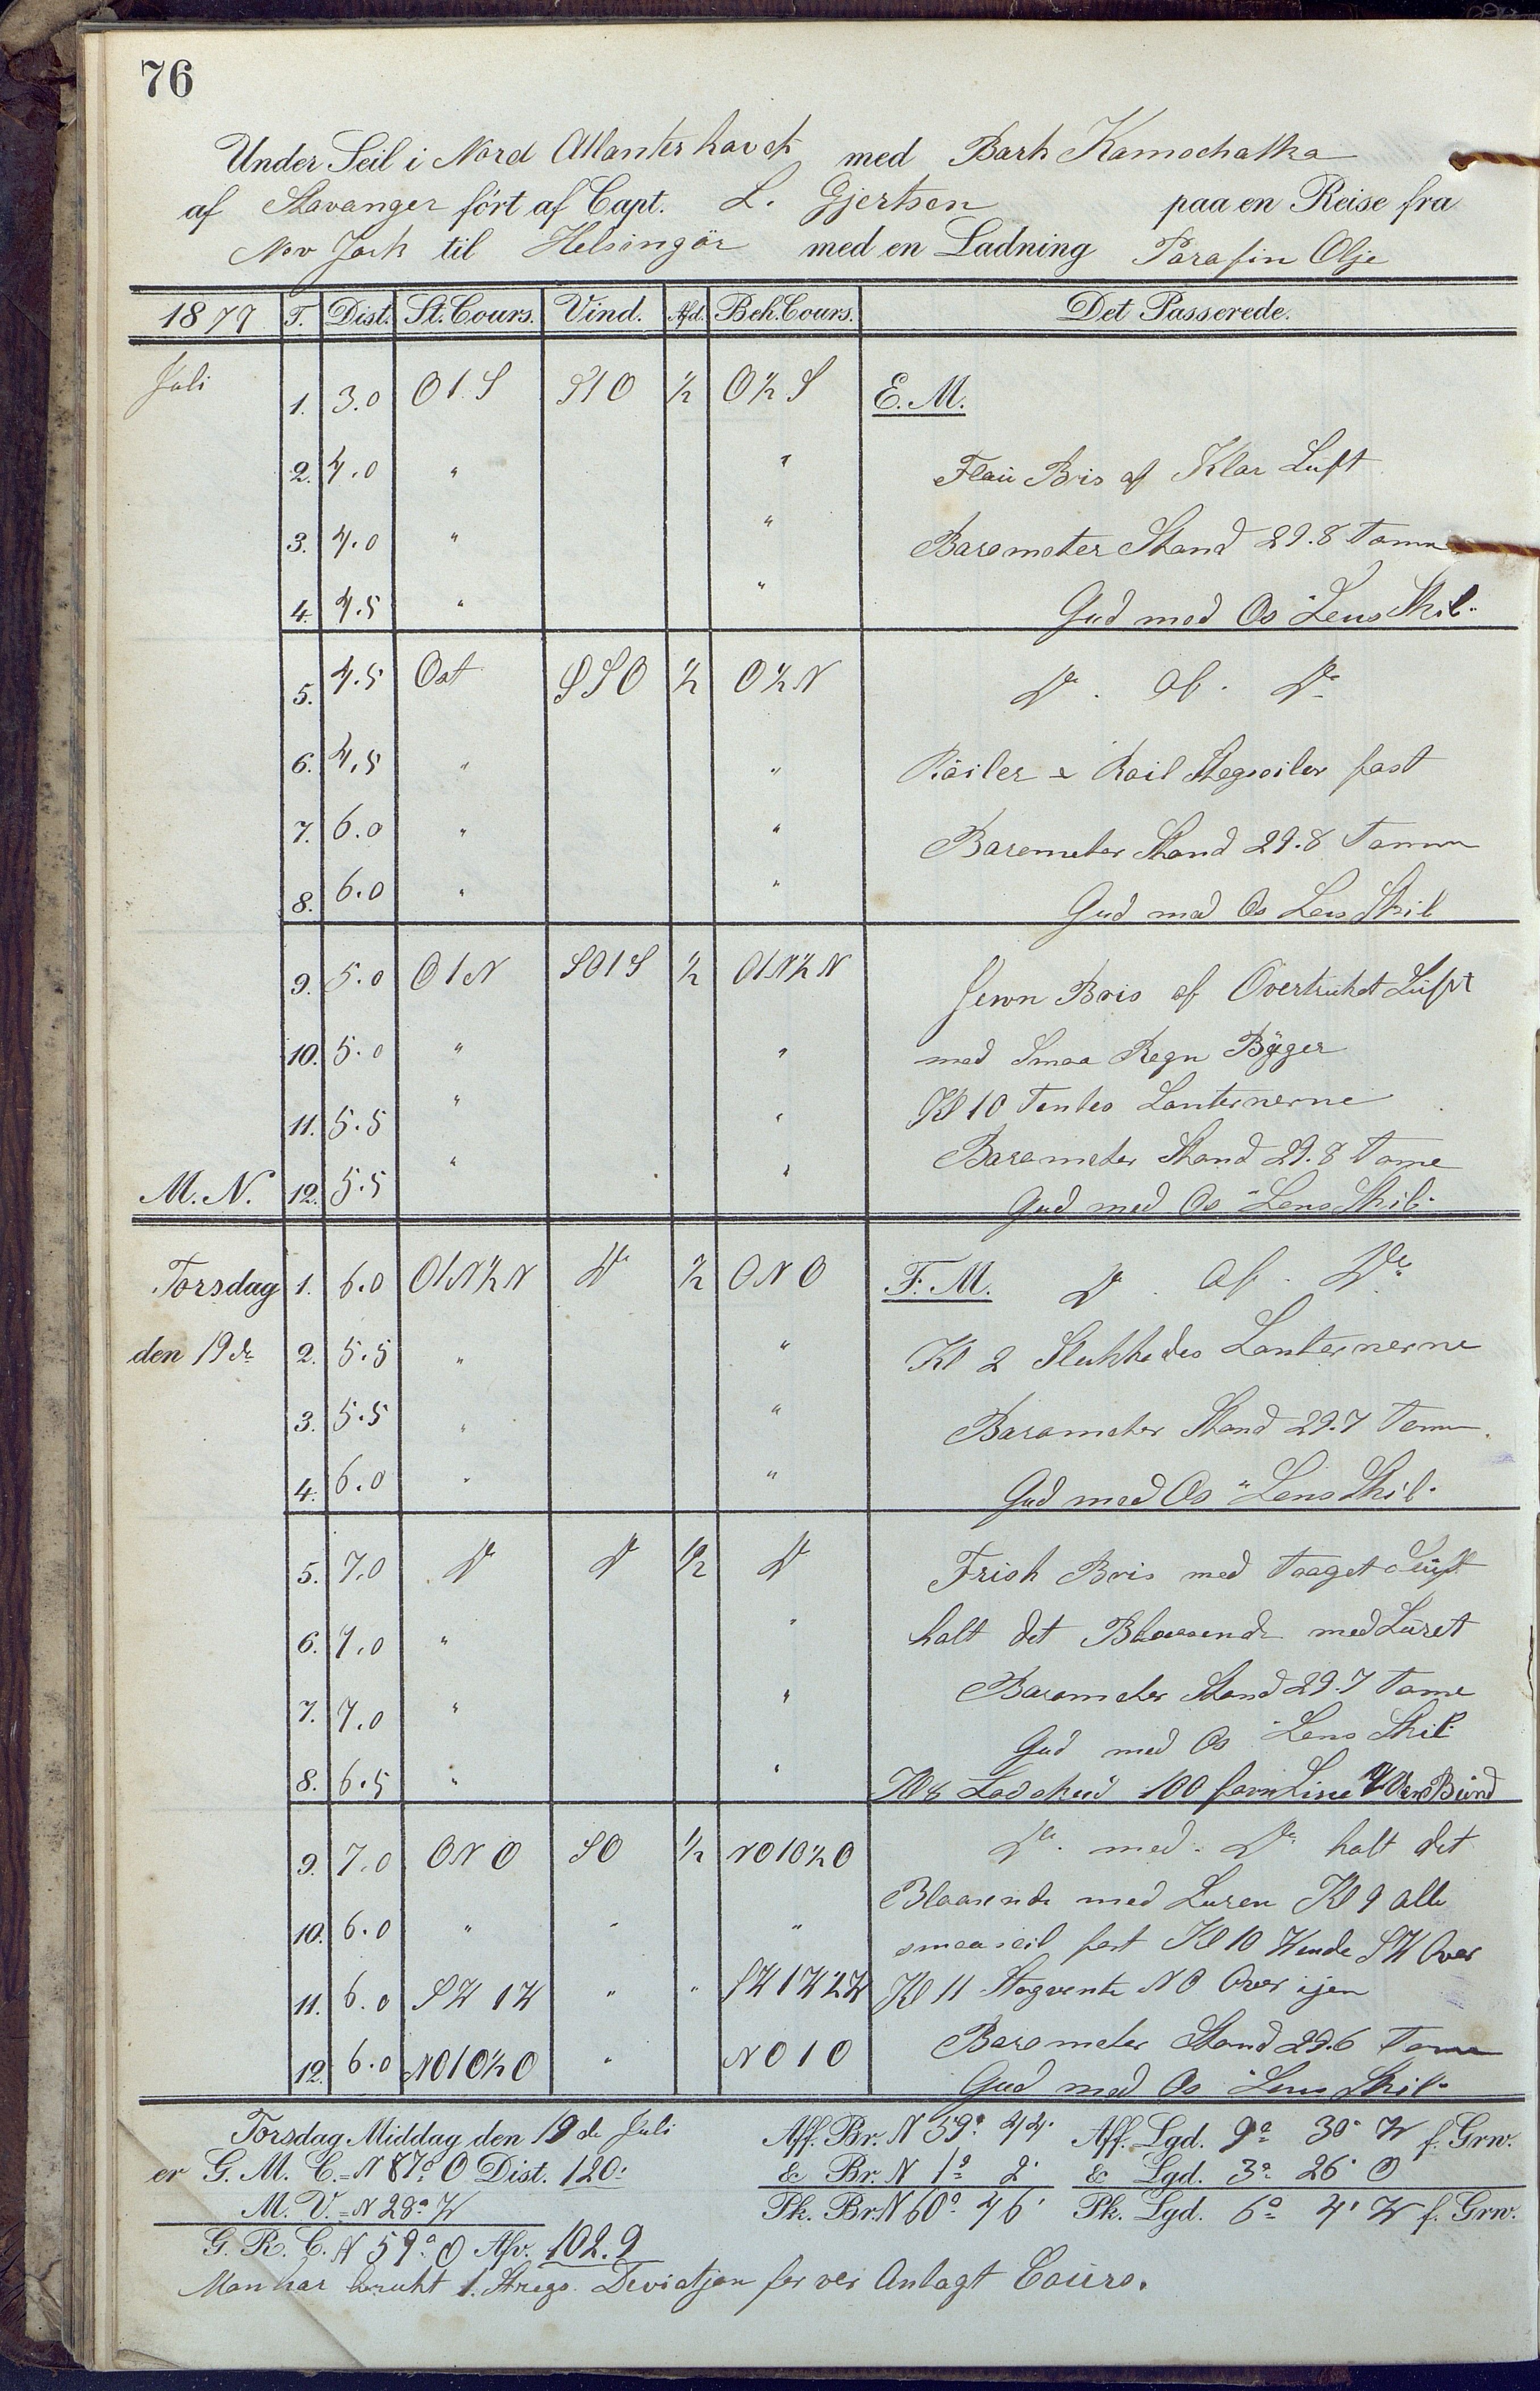 76
Under Seil i Nord Atlanterhavet med Bark Kamschatka
af Stavanger ført af Capt. L. Gjertsen paa en Reise fra
Nev York til Helsingør med en Ladning Parafin Olje
1877 T. Dist. St. Cours. Vind. Afd. Beh. Cours. Det Passerede.
Juli 1. 3.0 O 1 S S 1 O ½ O ½ S E. M.
2. 4.0 " " Flau Bris af Klar Luft
3. 4.0 " " Barometer Stand 29.8 Tomm
4. 4.5 " " Gud med Os Lens Skib.
5. 4.5 Ost S S O ½ O ½ N Do. Af. Do
6. 4.5 " " Röiler & Stagseiler fast
7. 6.0 " " Barometer Stand 29.8 Tomm
8. 6.0 " " Gud med Os Lens Skib
9. 5.0 O 1 N S O 1 S ½ O 1 N ½ N Jevn Bris af Overtrukket Luft
10. 5.0 " " med Smaa Regn Byger
11. 5.5 " " Kl 10 Tentes Lanternerne
Barometer Stand 29.8 Tome
M. N. 12. 5.5 " " Gud med Os "Lens Skib"
Torsdag 1. 6.0 O 1 N ½ N Do ½ O N O F. M. Do. Af. Do
den 19de 2. 5.5 " " Kl 2 Slukkedes Lanternerne
3. 5.5 " " Barometer Stand 29.7 Tomm.
4. 6.0 " " Gud med Os "Lens Skib"
5. 7.0 Do Do ½ Do Frisk Bris med Taaget Luft
6. 7.0 " " halt det Blaasende med Luret
7. 7.0 " " Barometer Stand 29.7 Tome
Gud med Os Lens Skib
8. 6.5 " " Kl 8 Lodskud 100 favn Line Bund
9. 7.0 O N O S O ½ N O 1 O ½ O Do. med. Do halt det
Blaasende med Luren Kl 9 alle
10. 6.0 " " " smaaseil fast Kl 10 Vende S W Over
11. 6.0 S W 1 W " " S W 1 W ½ W Kl 11 Stagvente N O Over igen
12. 6.0 N O 1 O ½ O " N O 1 O Barometer Stand 29.6 Tome
Gud med Os Lens Skib
Torsdag Middag den 19de Juli Aff. Br. N 59° 44' Aff. Lgd. 9° 30' W f. Grw.
er G. M. C. = N 87° O Dist. 120' & Br. N 1° 2' & Lgd. 3° 26' O
M. V. = N 28° W Pk. Br. N 60° 46' Pk. Lgd. 6° 4' W f. Grw.
G. R. C. N 59° O Afv. 102.9
Man har brukt 1. Stregs. Deviatjon for ver Anlagt Cours.